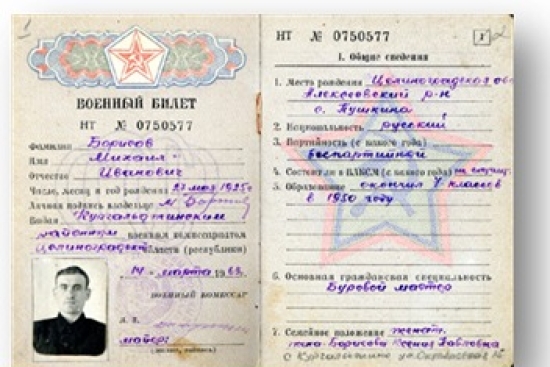 ВОЕННЫЙ БИЛЕТ
НТ № 0750577
Фамилия Борисов
Имя Михаил
Отчество Иванович
Число, месяц и год рождения 23 мая 1925г
Личная подпись владельца М Борисов
Выдан Кургальджинским
районным военным комиссариатом
Целиноградской области (республики)
14 марта 1963
ВОЕННЫЙ КОМИССАР
майор
НТ № 0750577
I. Общие сведения
1. Место рождения Целиноградская обл
Алексеевский р-н
с. Пушкино
2. Национальность русский
3. Партийность (с какого года)
беспартийный
4. Состоит ли в ВЛКСМ (с какого года)
5. Образование окончил 7 классов
в 1950 году
6. Основная гражданская специальность
Буровой мастер
7. Семейное положение женат.
жена-Борисова Ксения Павловна